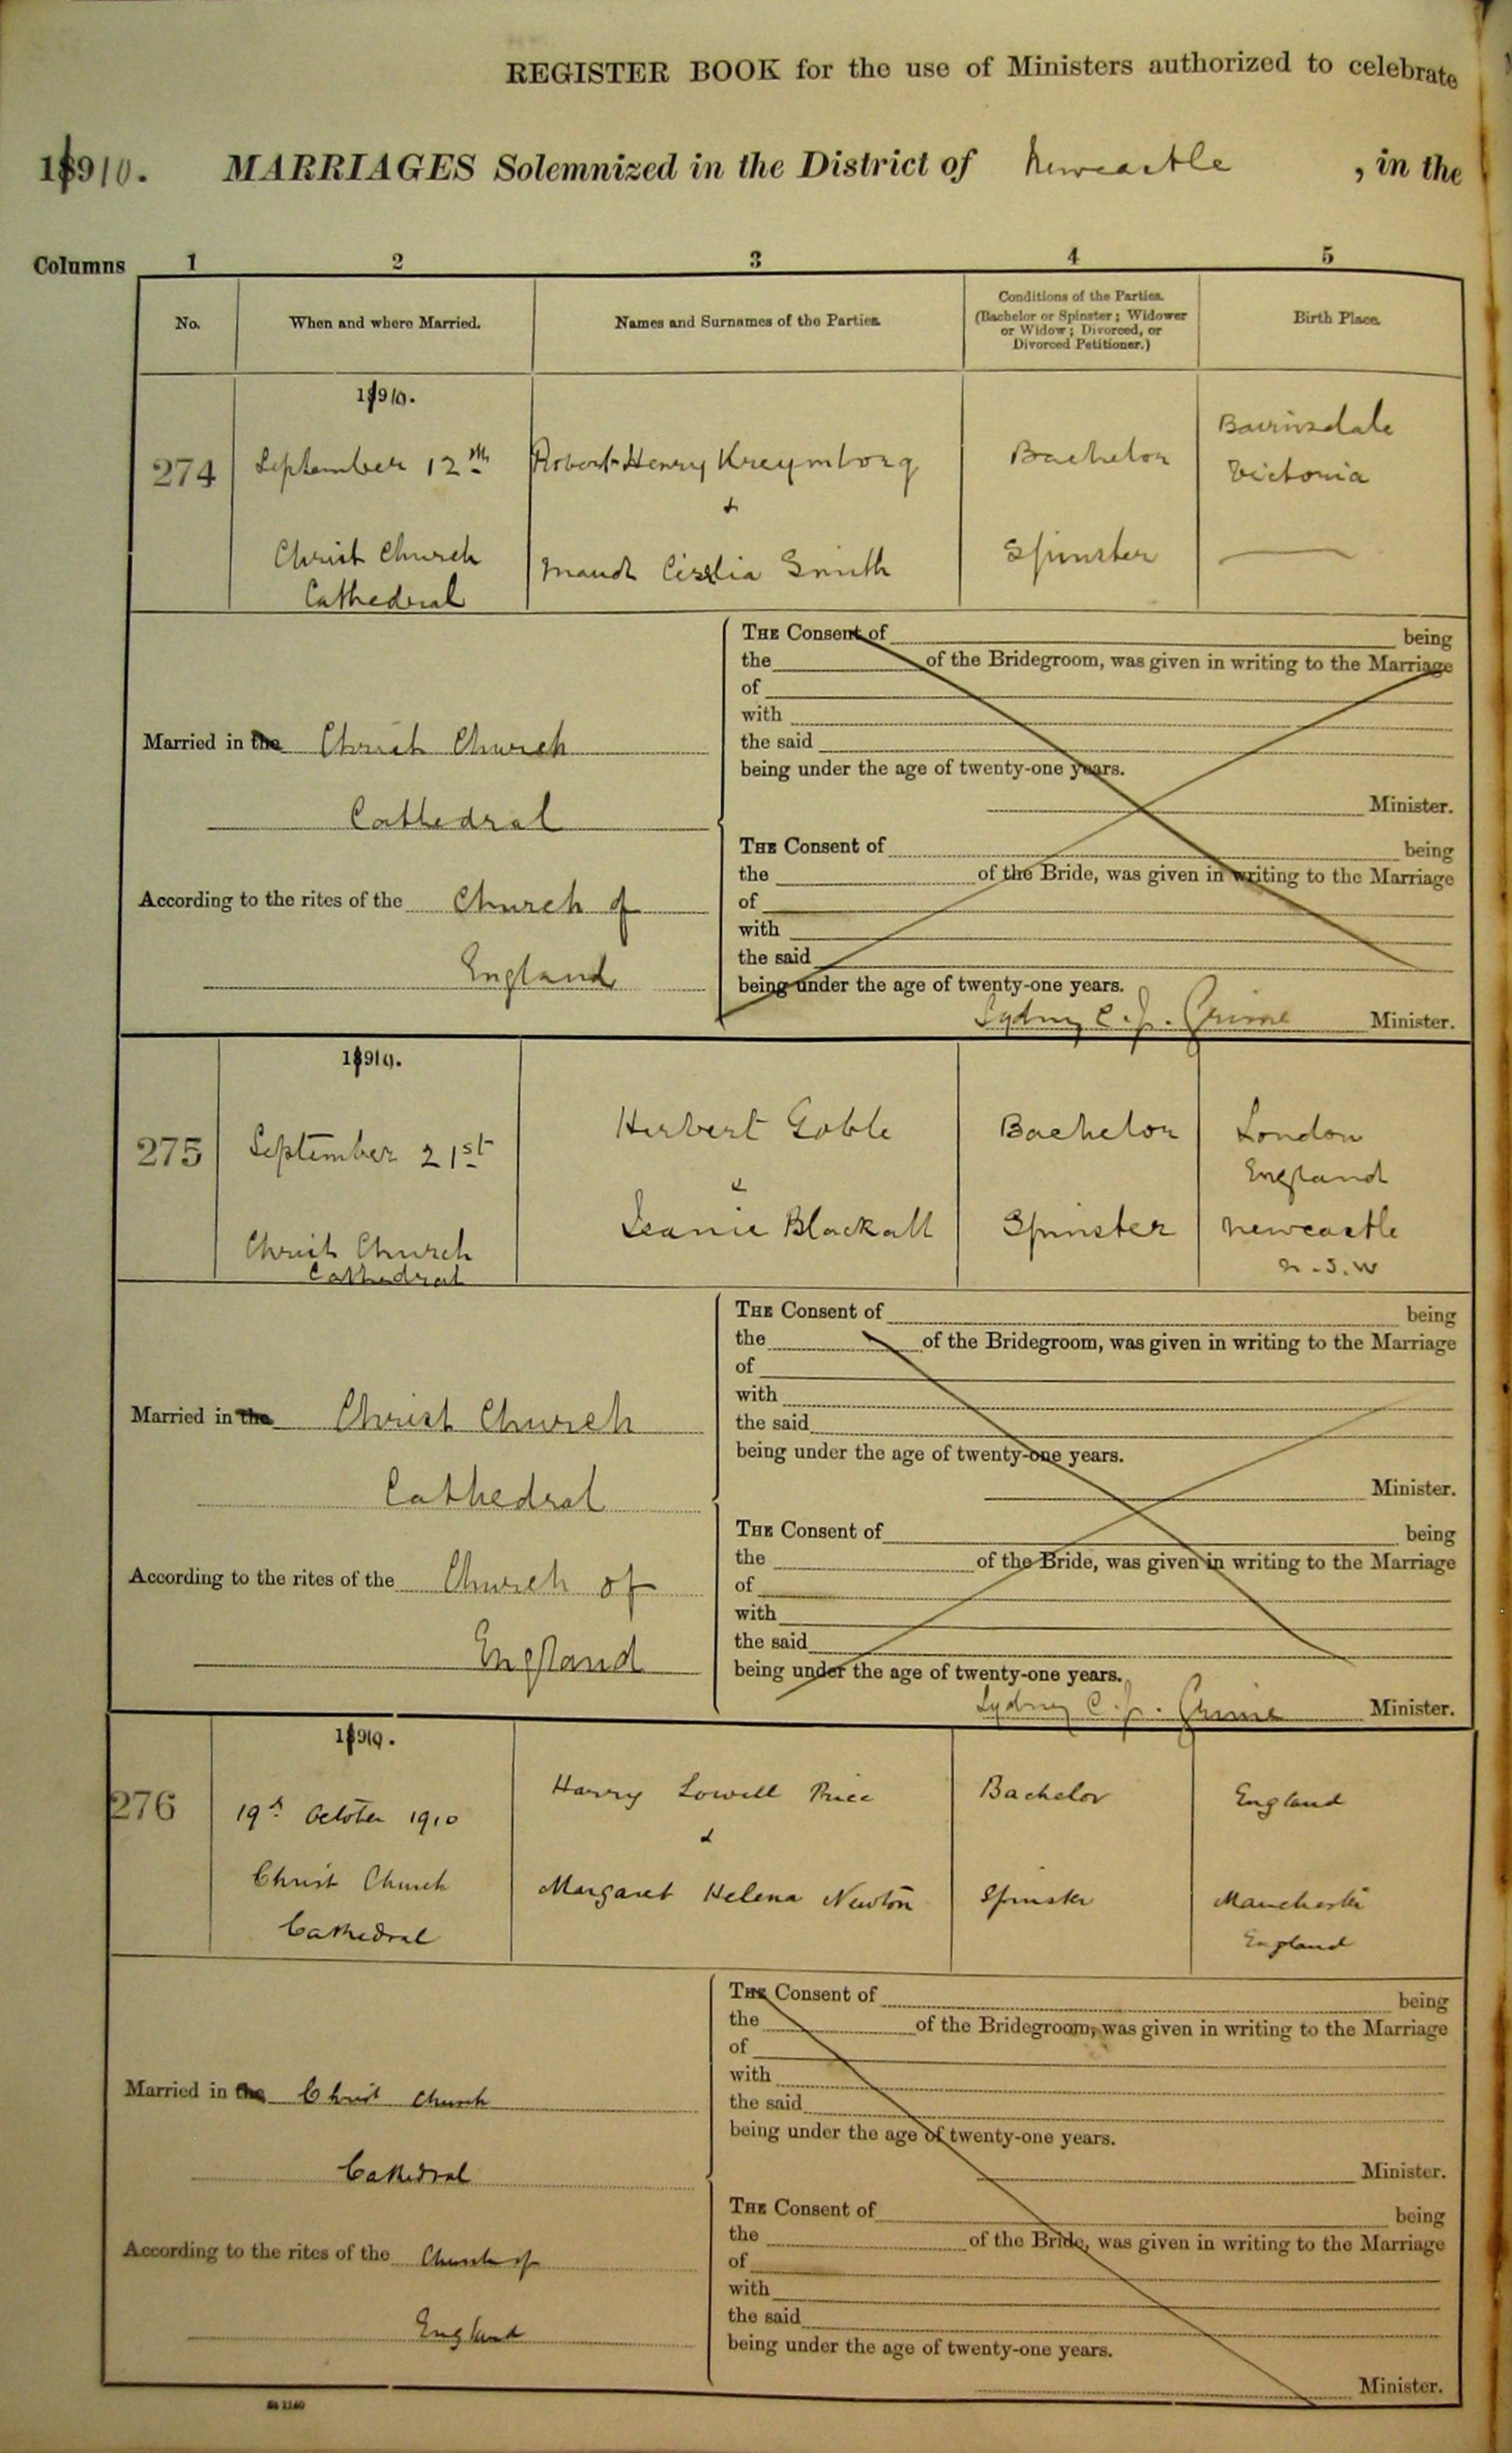 REGISTER BOOK for the use of Ministers authorized to celebrate
18910. MARRIAGES Solemnized in the District of Newcastle , in the
Columns 1 2 3 4 5
No. When and where Married. Names and Surnames of the Parties. Conditions of the Parties. (Bachelor or Spinster; Widower or Widow; Divorced, or Divorced Petitioner.) Birth Place.
18910.
274 September 12th Robert Henry Kreymborg Bachelor Bairnsdale
Victoria
+
Christ Church Maud Cisslia Smith Spinster
Cathedral
THE Consent of being
the of the Bridegroom, was given in writing to the Marriage
of
with
Married in the Christ Church
the said
being under the age of twenty-one years.
Minister.
Cathedral
THE Consent of being
the of the Bride, was given in writing to the Marriage
According to the rites of the Church of
of
with
the said
England
being under the age of twenty-one years.
Sydney C. J. Grime Minister.
18910.
Herbert Goble Bachelor London
England
275 September 21st
&
Jeanie Blackall Spinster Newcastle
N.S.W
Christ Church
Cathedral
THE Consent of being
the of the Bridegroom, was given in writing to the Marriage
of
with
Married in the Christ Church
the said
being under the age of twenty-one years.
Minister.
Cathedral
THE Consent of being
the of the Bride, was given in writing to the Marriage
According to the rites of the Church of
of
with
the said
England
being under the age of twenty-one years.
Sydney C. J. Grime Minister.
18910.
Harry Lowell Price Bachelor England
276 19th October 1910
&
Christ Church Margaret Helena Newton Spinster Manchester
Cathedral England
THE Consent of being
the of the Bridegroom, was given in writing to the Marriage
of
with
Married in the Christ Church
the said
being under the age of twenty-one years.
Minister.
Cathedral
THE Consent of being
the of the Bride, was given in writing to the Marriage
According to the rites of the Church of
of
with
the said
England
being under the age of twenty-one years.
Minister.